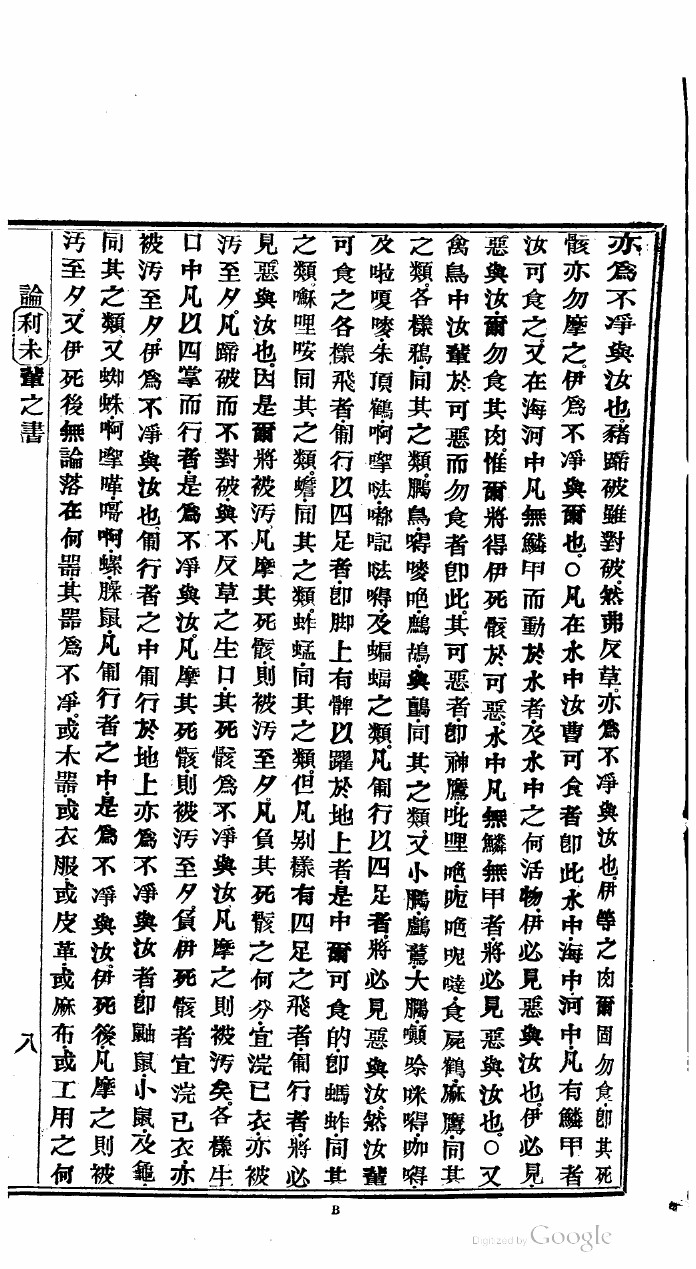 亦為不凈與汝也。豬蹄破雖對破。然弗反草。亦為不凈與汝也。伊等之肉爾固勿食。即其死
骸亦勿摩之。伊為不凈與爾也。○凡在水中汝曹可食者即此水中海中河中。凡有鱗甲者
汝可食之。又在海河中凡無鱗甲而動於水者。及水中之何活物。伊必見惡與汝也。伊必見
惡與汝。爾勿食其肉。惟爾將得伊死骸於可惡。水中凡無鱗無甲者。將必見惡與汝也。○又
禽鳥中汝輩於可惡而勿食者即此。其可惡者即神鷹吡哩𠾐𠱂𠾐𠯋噠食屍鶴麻鷹同其
之類。各樣鴉同其之類。鵬鳥嘚嘜鷓鴣與鸛同其之類。又小鵬鸕鶿大鵬嘚咖嘚
及啦嗄嘜朱頂鶴啊㗫呿嘟記呿嘚及蝙蝠之類。凡匍行以四足者。將必見惡與汝。然汝輩
可食之各樣飛者匍行以四足者。即脚上有髀以躍於地上者。是中爾可食的。即螞蚱同其
之類。嗽哩咹同其之類。蟾同其之類。蚱蜢同其之類。但凡別樣有四足之飛者匍行者。將必
見惡與汝也。因是爾將被汚。凡摩其死骸則被汚至夕。凡負其死骸之何分宜浣已衣亦被
汚至夕。凡蹄破而不對破。與不反草之生口。其死骸為不凈與汝。凡摩之則被汚矣。各樣生
口中凡以四掌而行者。是為不凈與汝。凡摩其死骸。則被汚至夕。負伊死骸者宜浣已衣。亦
被汚至夕。伊為不凈與汝也。匍行者之中匍行於地上亦為不凈與汝者。即鼬鼠小鼠及龜
同其之類。又蜘蛛啊㗫嘩嗝啊螺臊鼠。凡匍行者之中。是為不凈與汝。伊死後凡摩之則被
汚至夕。又伊死後無論落在何器。其器為不凈。或木器或衣服或皮革或麻布或工用之何
論利未輩之書 八
B
Digitized by Google